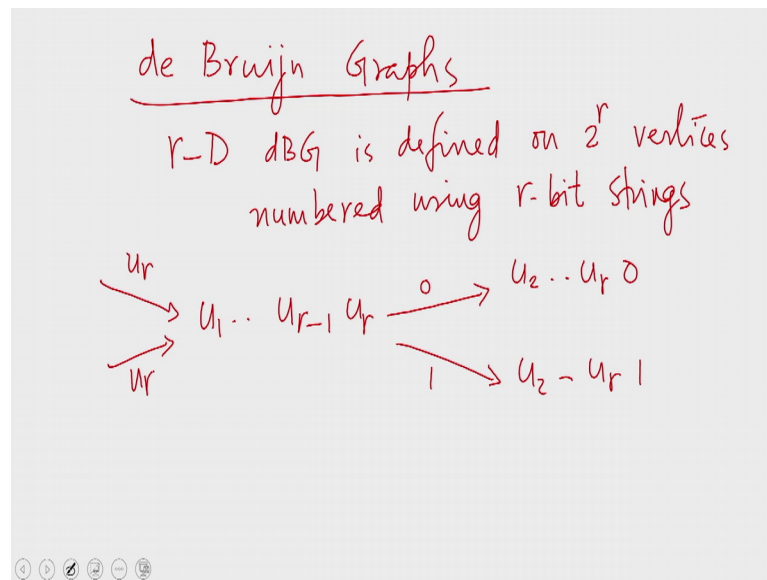 de Bruijn Graphs
r-D dBG is defined on 2^r vertices
numbered using r-bit strings
u_r
0 u_2 .. u_r 0
u_1 .. u_{r-1} u_r
u_r
1 u_2 - u_r 1